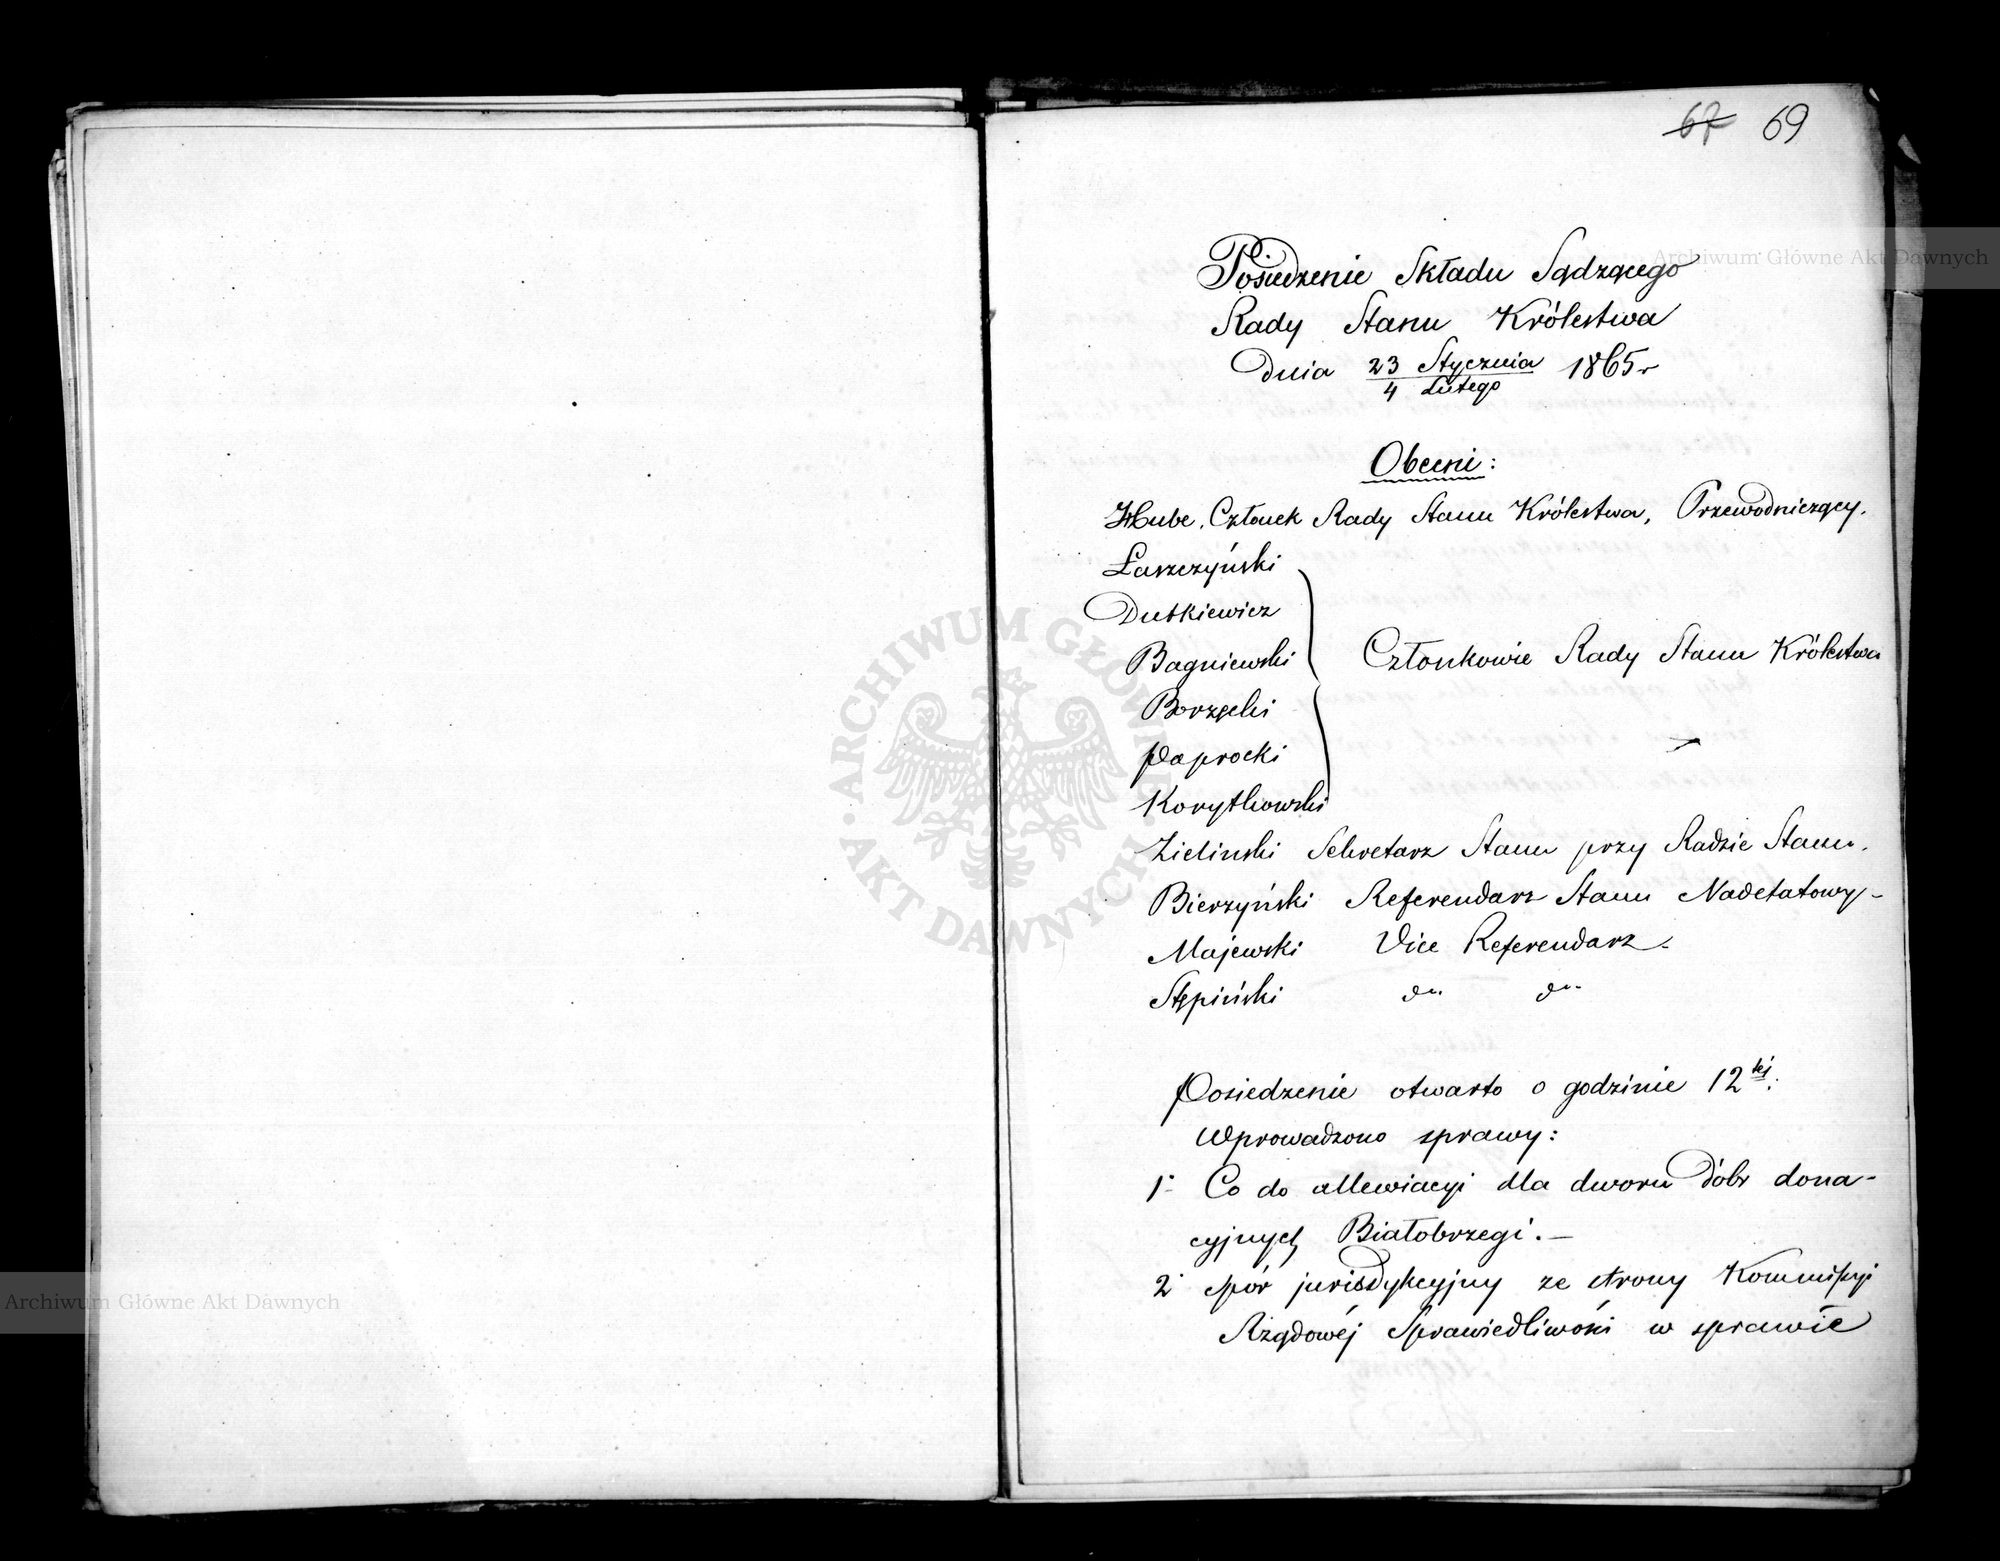 67 69
Posiedzenie Składu Sądzącego
Rady Stanu Królestwa
Dnia 23 Stycznia 1865 r
4 Lutego
Obecni:
Hube, Członek Rady Stanu Królestwa, Przewodniczący.
Łaszczyński
Dutkiewicz
Bagniewski Członkowie Rady Stanu Królestwa
Borzęcki
Paprocki
Korytkowski
Zieliński Sekretarz Stanu przy Radzie Stanu.
Bierzyński Referendarz Stanu Nadetatowy
Majewski Vice Referendarz
Stępiński do do
Posiedzenie otwarto o godzinie 12tej.
Wprowadzono sprawy:
1. Co do allewiacyi dla dworu dóbr dona-
cyjnych Białobrzegi. —
2 spór jurisdykcyjny ze strony Kommissyi
Rządowéj Sprawiedliwości w sprawie
Archiwum Główne Akt Dawnych
Archiwum Główne Akt Dawnych
ARCHIWUM GŁÓWNE AKT DAWNYCH